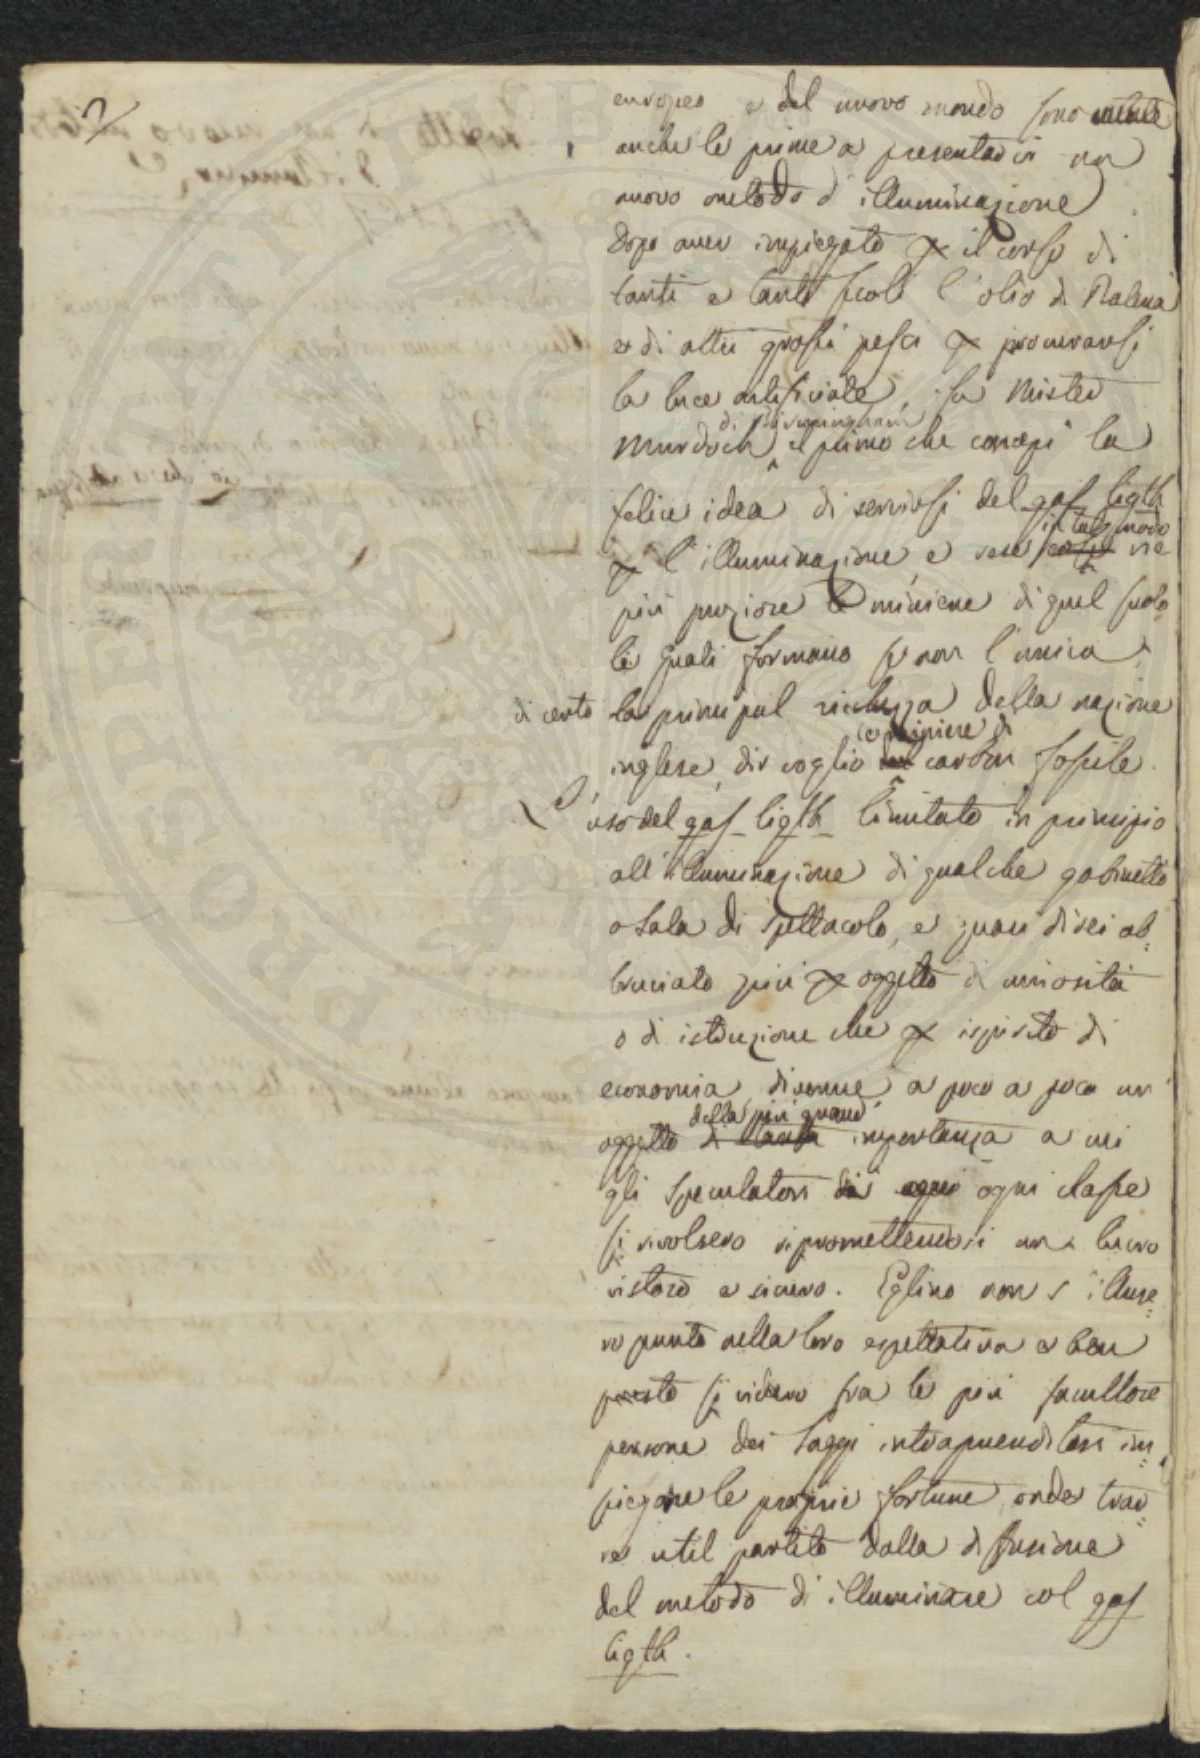 2
europeo e del nuovo mondo sono
anche le prime a presentarci un
nuovo metodo d'illuminazione
Dopo aver impiegato p il corso di
tanti e tanti secoli l'olio di Balena
e di altri grossi pesci p procurarsi
la luce artificiale, fu Mister
Murdoch di Birmingham il primo che concepì la
felice idea di servirsi del gas ligth
p l'illuminazione e rese in tal modo vie
più preziose le miniere di quel suolo
le quali formano se non l'unica,
di certo la principal ricchezza della nazione
inglese, dir voglio le miniere di carbon fossile.
L'uso del gas ligth limitato in principio
all'illuminazione di qualche gabinetto
o Sala di spettacolo, e quasi direi ab=
bruciato più p oggetto di curiosità
o di istruzione che p ispirito di
economia, divenne a poco a poco un
oggetto di tanta della più grand' importanza a cui
gli speculatori di ogni ogni classe
si rivolsero ripromettendosi un lucro
vistoso e sicuro. Eglino non s'illuse=
ro punto nella loro espettativa e ben
presto si videro fra le più facoltose
persone dei Saggi intraprenditori im=
piegare le proprie fortune onde trar=
re util partito dalla diffusione
del metodo di illuminare col gas
ligth.